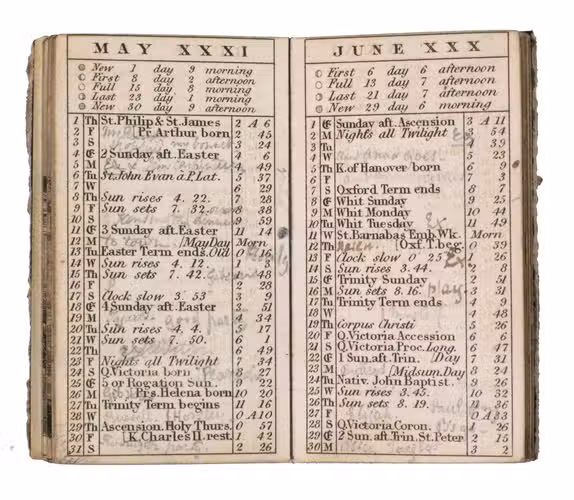 MAY XXXI
New 1 day 9 morning
First 8 day 2 afternoon
Full 15 day 8 morning
Last 23 day 1 morning
New 30 day 9 afternoon
1 Th St. Philip & St. James 2 A 6
2 F Pr. Arthur born 2 45
3 S 3 24
4 E 2 Sunday aft. Easter 4 6
5 M 4 49
6 Tu St. John Evan. à P. Lat. 5 37
7 W 6 29
8 Th Sun rises 4. 22. 7 28
9 F Sun sets 7. 32. 8 38
10 S 9 59
11 E 3 Sunday aft. Easter 11 14
12 M May Day Morn
13 Tu Easter Term ends. Old 0 16
14 W Sun rises 4. 12.
15 Th Sun sets 7. 42. 1 48
16 F 2 28
17 S Clock slow 3' 53 3 9
18 E 4 Sunday aft. Easter 3 51
19 M 4 34
20 Tu Sun rises 4. 4. 5 17
21 W Sun sets 7. 50. 6 1
22 Th 6 49
23 F Nights all Twilight 7 34
24 S Q. Victoria born 8 27
25 E 5 or Rogation Sun. 9 22
26 M Prs. Helena born 10 20
27 Tu Trinity Term begins 11 16
28 W Holy 0 A 10
29 Th Ascension. Holy Thurs. 0 57
30 F K. Charles II. rest. 1 42
31 S 2 26
JUNE XXX
First 6 day 6 afternoon
Full 13 day 7 afternoon
Last 21 day 7 afternoon
New 29 day 6 morning
1 E Sunday aft. Ascension 3 A 11
2 M Nights all Twilight 3 54
3 Tu 4 39
4 W 5 23
5 Th K. of Hanover born 6 9
6 F 7 3
7 S Oxford Term ends 8 7
8 E Whit Sunday 9 25
9 M Whit Monday 10 44
10 Tu Whit Tuesday 11 49
11 W St. Barnabas. Emb. Wk. Morn
12 Th [Oxf. T. beg. 0 39
13 F Clock slow 0' 25" 1 26
14 S Sun rises 3. 44. 2 8
15 E Trinity Sunday 2 51
16 M Sun sets 8. 16. 3 31
17 Tu Trinity Term ends 4 9
18 W 4 48
19 Th Corpus Christi 5 26
20 F Q. Victoria Accession 6 6
21 S Q. Victoria Proc. Long. 6 47
22 E 1 Sun. aft. Trin. Day 7 31
23 M [Midsum. Day 8 24
24 Tu Nativ. John Baptist. 9 26
25 W Sun rises 3. 45. 10 32
26 Th Sun sets 8. 19. 11 36
27 F 0 A 33
28 S Q. Victoria Coron. 1 26
29 E 2 Sun. aft. Trin. St. Peter 2 15
30 M 3 2